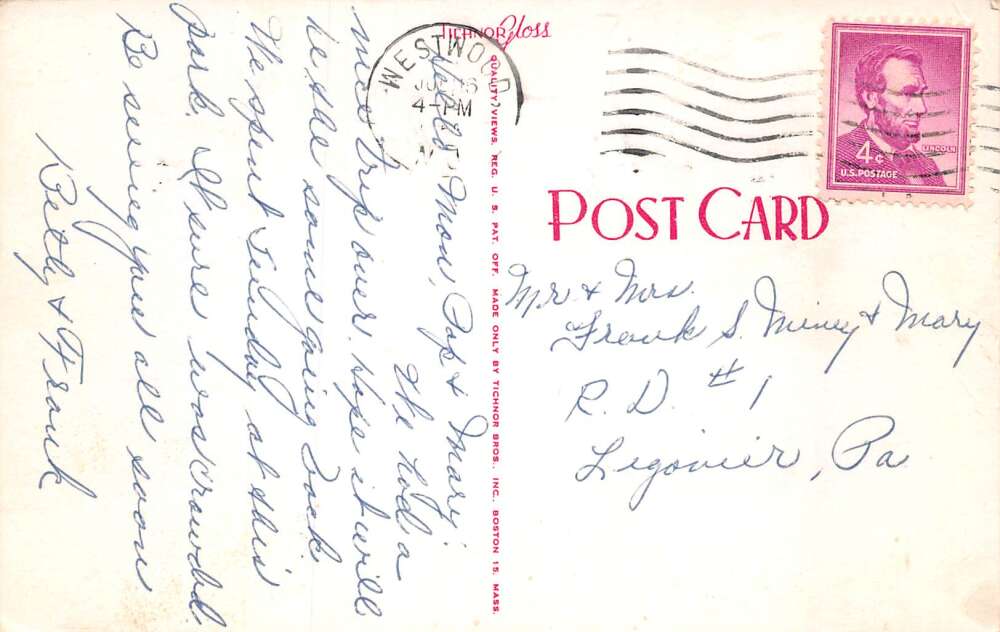 TICHNOR Gloss
QUALITY VIEWS. REG. U. S. PAT. OFF. MADE ONLY BY TICHNOR BROS., INC., BOSTON 15, MASS.
WESTWOOD
4-PM
LINCOLN
4¢
U.S. POSTAGE
POST CARD
Mom, Pap & Mary
We had a
nice trip over. Hope it will
be the same going back.
We spent Sunday at this
park. It sure was crowded.
Be seeing you all soon
Betty & Frank
Mr & Mrs.
Frank S. & Mary
R. D. #1
Ligonier, Pa